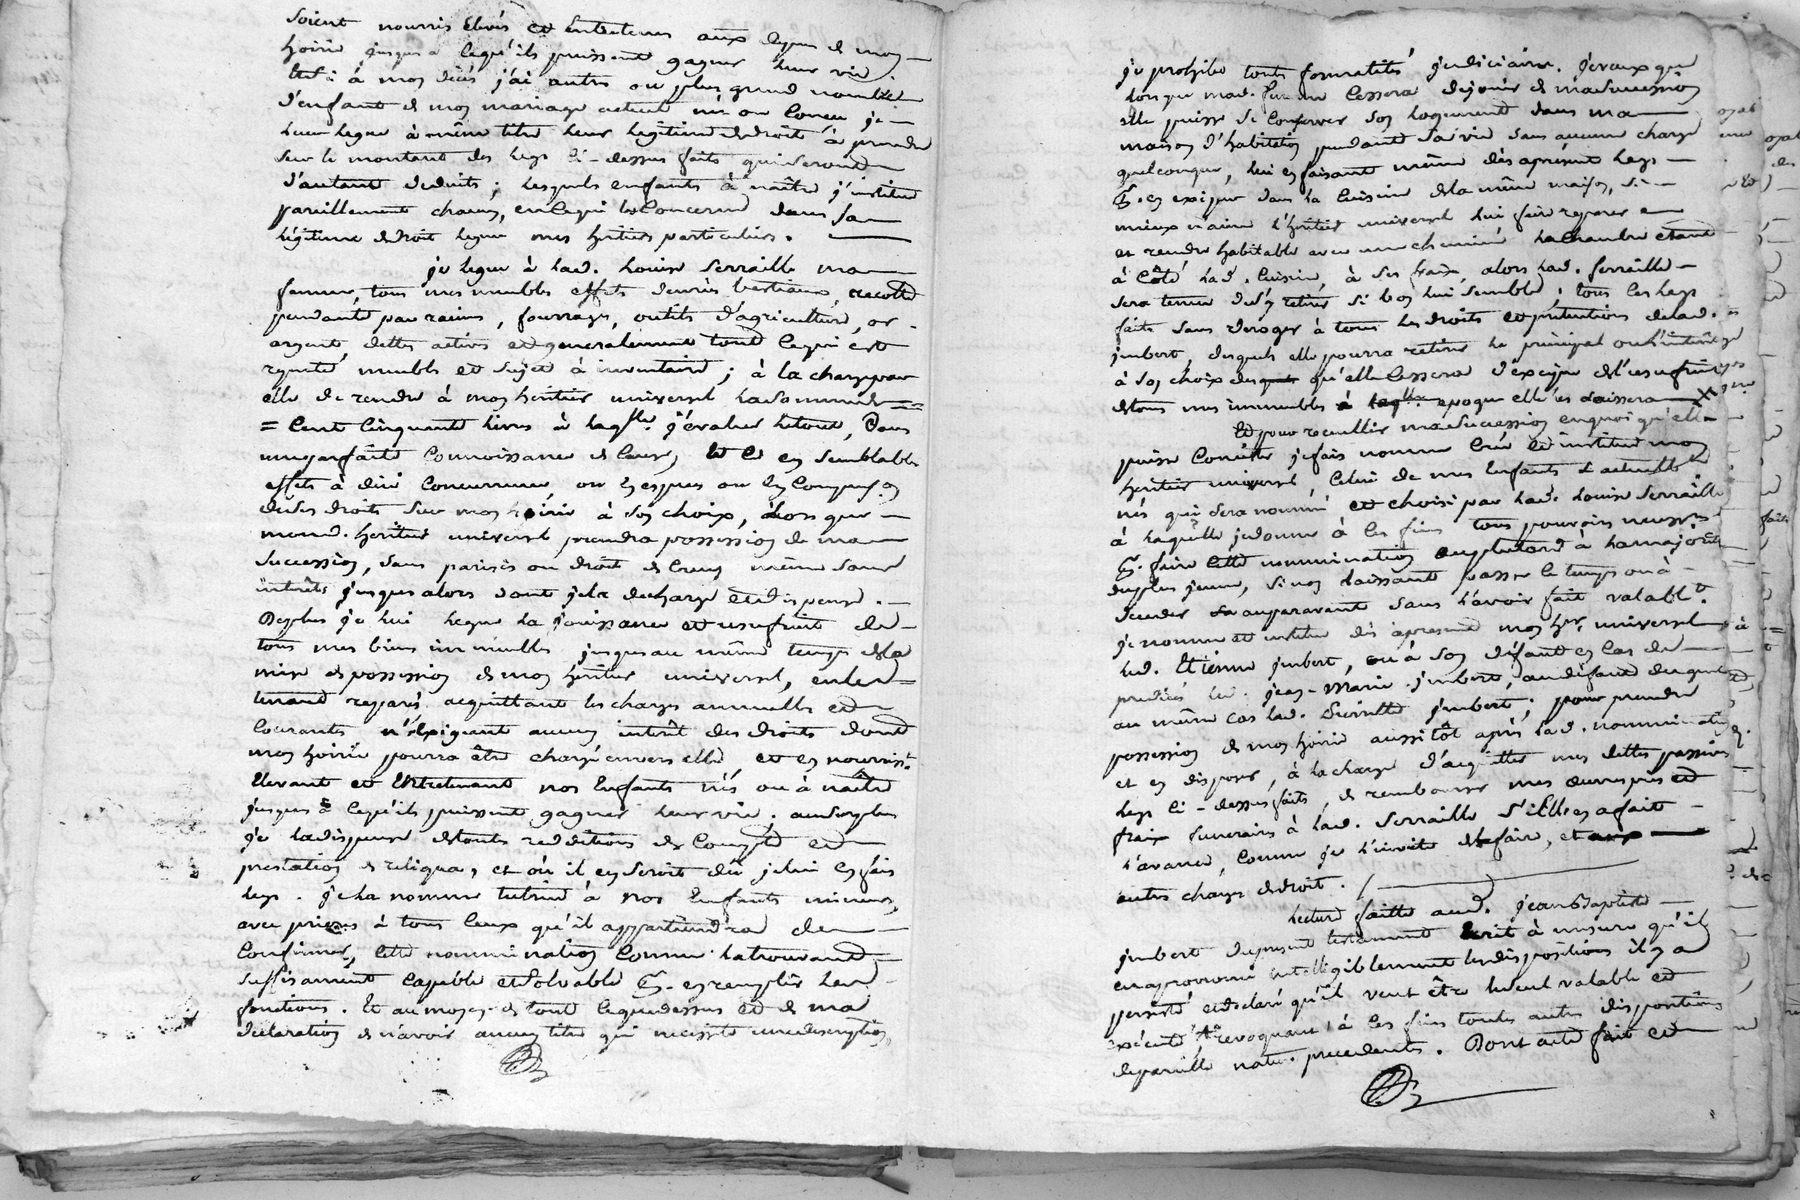 soient nourris élevés et entretenus aux depens de mon
hoirie jusques a cequ'ils puissent gagner leur vie.
Et si à mon décès j'ai autre ou plus grand nombre
d'enfant de mon mariage actuel né ou concu je
leur legue à même titre leur légitime de droit à prendre
sur le montant des legs ci-dessus faits qui seront
d'autant deduits; lesquels enfants à naître j'institue
pareillement chacun, en cequi le concerne dans sa
légitime de droit legue mes hértiers particuliers.
je legue à lad. Louise Serraille ma
femme, tous mes meubles effets denrées bestiaux, recolte
pendante par racines, fourrages, outils d'agriculture, or
argent dettes actives et generalement tout cequi est
reputé meuble et sujet à inventaire; à la charge par
elle de rendre à mon héritier universel la somme de
= cent cinquante livres à laq.lle j'évalue le tout, dans
une parfaite connoissance de leur, et ce en semblables
effets à dire concurrence ou en especes ou en compens.on
de ses droits sur mon hoirie à son choix, alors que
mond. héritier universel prendra possession de ma
succession, sans parisis ou droit de crue, même sans
intérêts jusques alors dont je la decharge et dispense.
Deplus je lui legue la jouissance et usufruit de
tous mes biens immeubles jusques au même temps de la
mise de possession de mon héritier universel, en les
tenant reparés acquittant les charges annuelles et
courantes n'exigeant aucun intérêt des droits dont
mon hoirie pourra être chargé envers elle, et en nourriss.t
elevant et entretenant nos enfants nés ou à naître
jusques à cequ'ils puissent gagner leur vie; au surplus
je la dispense de toutes redditions de compte et
prestation de reliqua, et où il en seroit dû je lui en fais
legs. je la nomme tutrice à nos enfants mineurs,
avec prieres à tous ceux qu'il appartiendra de
confirmer, cette nommination comme la trouvant
suffisament capable et solvable p.r en remplir les
fonctions. Et au moyen de tout cequedessus et de ma
declaration de n'avoir aucun titre qui necessite une description,
je prohibe toute formalités judiciaire. je veux que
lorsque mad. femme cessera de jouir de ma succession
elle puisse se conserver son logement dans ma
maison d'habitation pendant sa vie sans aucune charge
quelconque, lui en faisant même dès aprésent legs
p.r en exiger dans la cuisine de la même maison, si
mieux n'aime l'héritier universel lui faire reparer
et rendre habitable avec une cheminé la chambre etant
à côté lad. cuisine, à ses fraix, alors lad. Serraille
sera tenue de s'y retirer si bon lui semble. tous ces legs
faits sans deroger à tous les droits et prétentions de lad.
jmbert, desquels elle pourra retirer le principal ou l'intérêt
à son choix qu'elle cessera d'exiger de l'usufruit
de tous mes immeubles epoque elle en laissera X
Et pour recueillir ma succession en quoi qu'elle
puisse consister je fais nomme crée et institue mon
héritier universel, celui de mes enfants d'actuelle
nés qui sera nommé et choisi par lad. Louise Serraille
à laquelle je donne à ces fins tous pouvoirs necess.
p.r faire cette nommination au plutard à la majorité
du plus jeune, si non laissant passer ce temps ou à
deceder auparavant sans l'avoir fait valabl.t
je nomme et institue dès apresent mon h.er universel
led. Etienne jmbert, ou à son défaut en cas de
predécès led. jean-Marie jmbert, au défaut duquel
au même cas lad. jmbert, pour prendre
possession de mon hoirie aussitôt après lad. nommination
et en disposer, à la charge d'acquitter mes dettes passives
legs ci-dessus faits, de rembourser mes œuvres pies et
fraix funeraires à lad. Serraille s'ille en a fait
l'avance, comme je l'invite de faire, et
autres charges de droit.
Lecture faitte aud. jean Baptiste
jmbert du present testament ecrit à mesure qu'il
en a prononcé intelligiblement les dispositions il y a
persisté et declaré qu'il veut être le seul valable et
exécuté revoquant à ces fins toutes autres dispositions
de pareille nature precedentes. Dont acte fait et